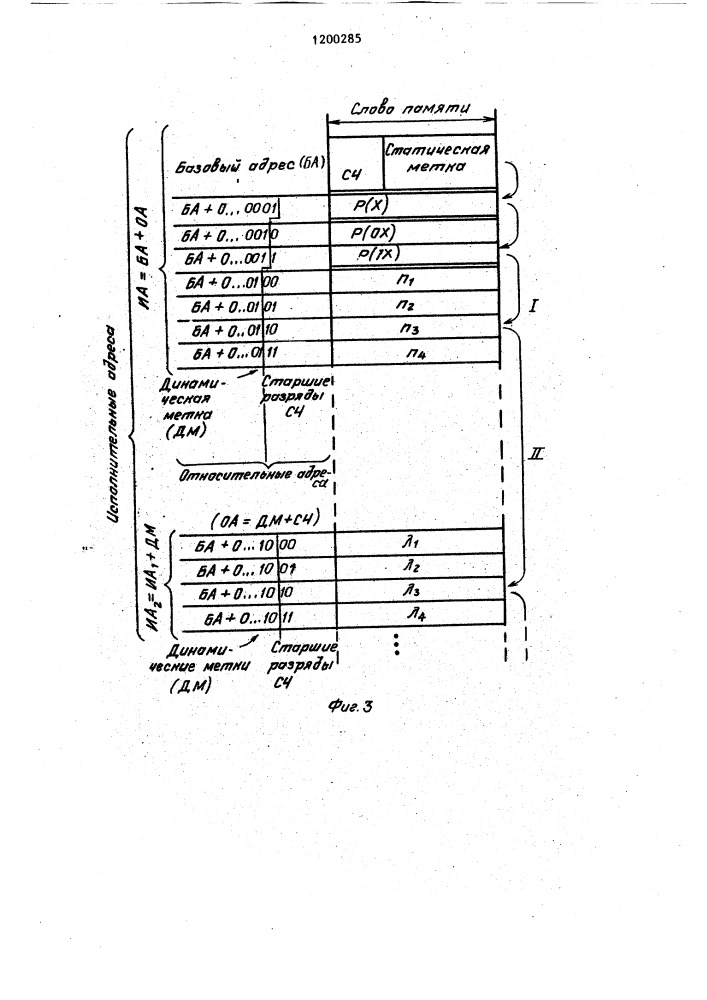 1200285
Слово памяти
Базовый адрес (БА)
СЧ
Статическая
метка
БА + 0...0001
P(X)
БА + 0...0010
P(0X)
БА + 0...0011
P(1X)
БА + 0...0100
П1
БА + 0..0101
П2
БА + 0..0110
П3
БА + 0...0111
П4
I
II
ИА = БА + ОА
Исполнительные адреса
Динами-
ческая
метка
(ДМ)
Старшие
разряды
СЧ
Относительные адре-
са
(ОА = ДМ+СЧ)
ИА2 = ИА1 + ДМ
БА + 0...1000
Л1
БА + 0...1001
Л2
БА + 0...1010
Л3
БА + 0...1011
Л4
Динами-
ческие метки
(ДМ)
Старшие
разряды
СЧ
Фиг. 3